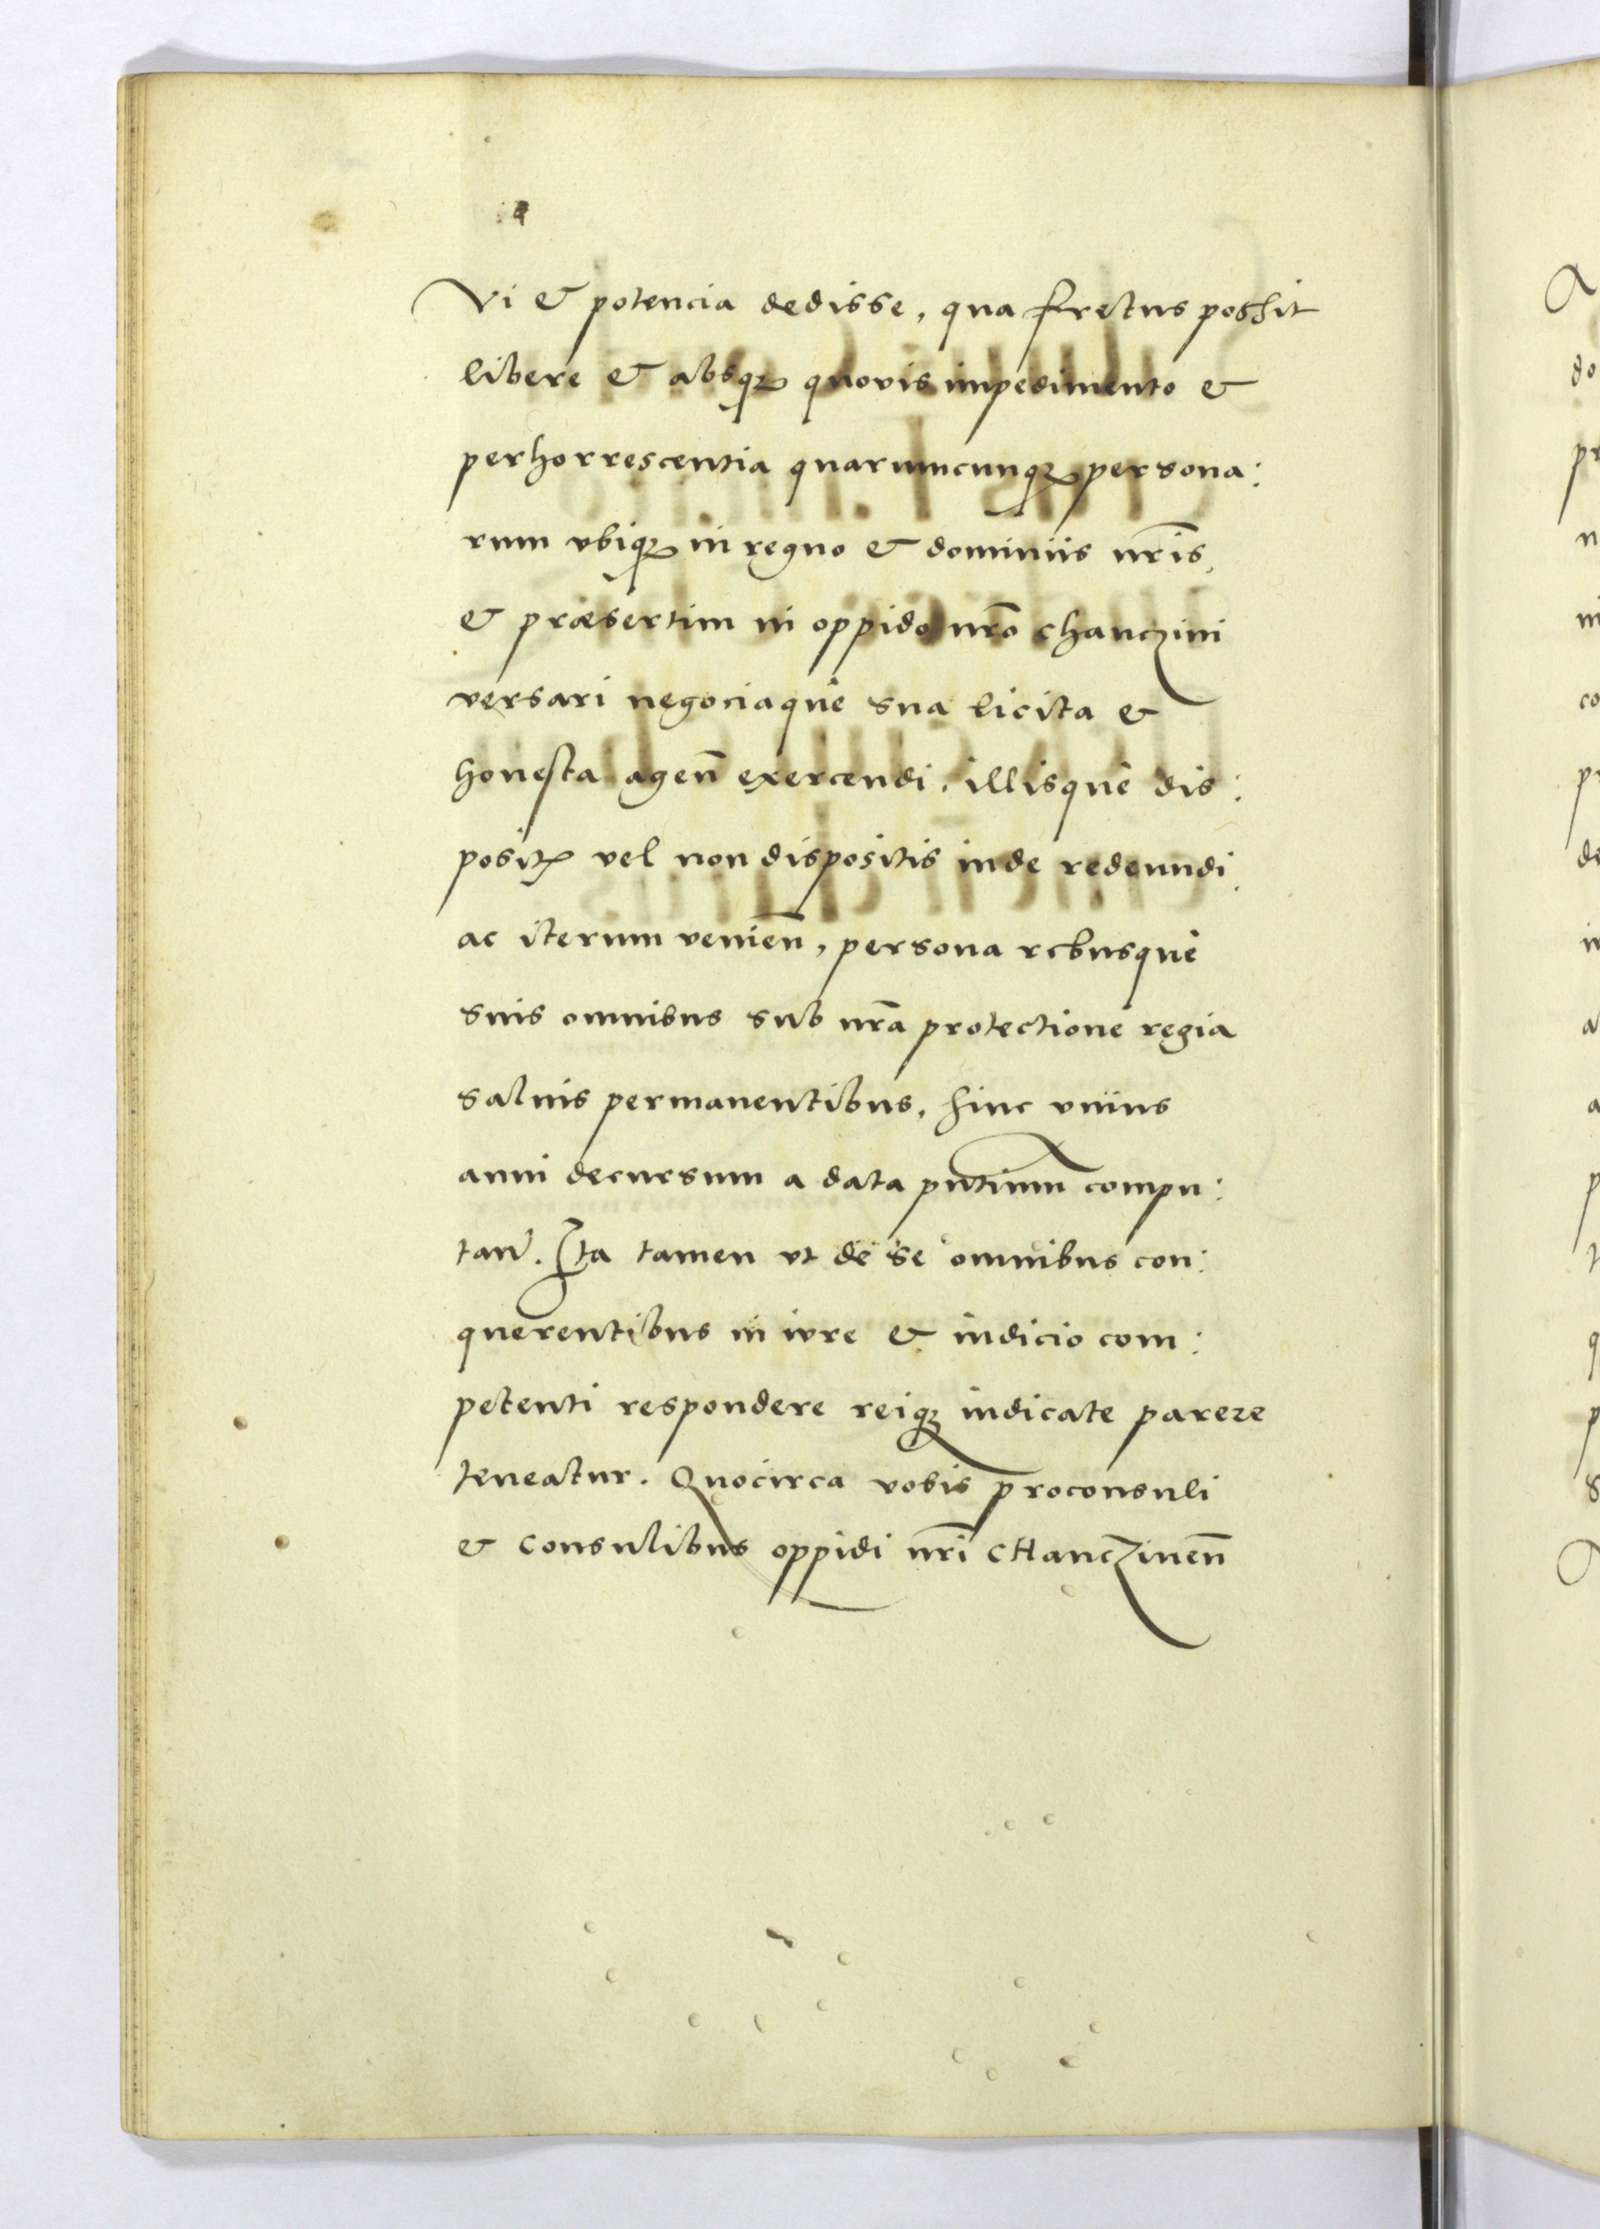 Vi & potencia dedisse, qua fretus possit
libere & absqꝫ quovis impedimento &
perhorrescentia quarumcunqꝫ persona:
rum vbiqꝫ in regno & dominiis nr̃is,
& præsertim in oppido nr̃o chanczini
versari negociaque sua licita &
honesta ageñ exercendi, illisque dis:
positꝭ vel non dispositis inde redeundi
ac iterum venieñ, persona rebusque
suis omnibus sub nr̃a protectione regia
saluis permanentibus, hinc vnius
anni decursum a data pñtium compu:
tañ. Ita tamen vt de se omnibus con:
querentibus in iure & iudicio com:
petenti respondere reiqꝫ iudicate parere
teneatur. Quocirca vobis proconsuli
& Consulibus oppidi nr̃i CHanczineñ